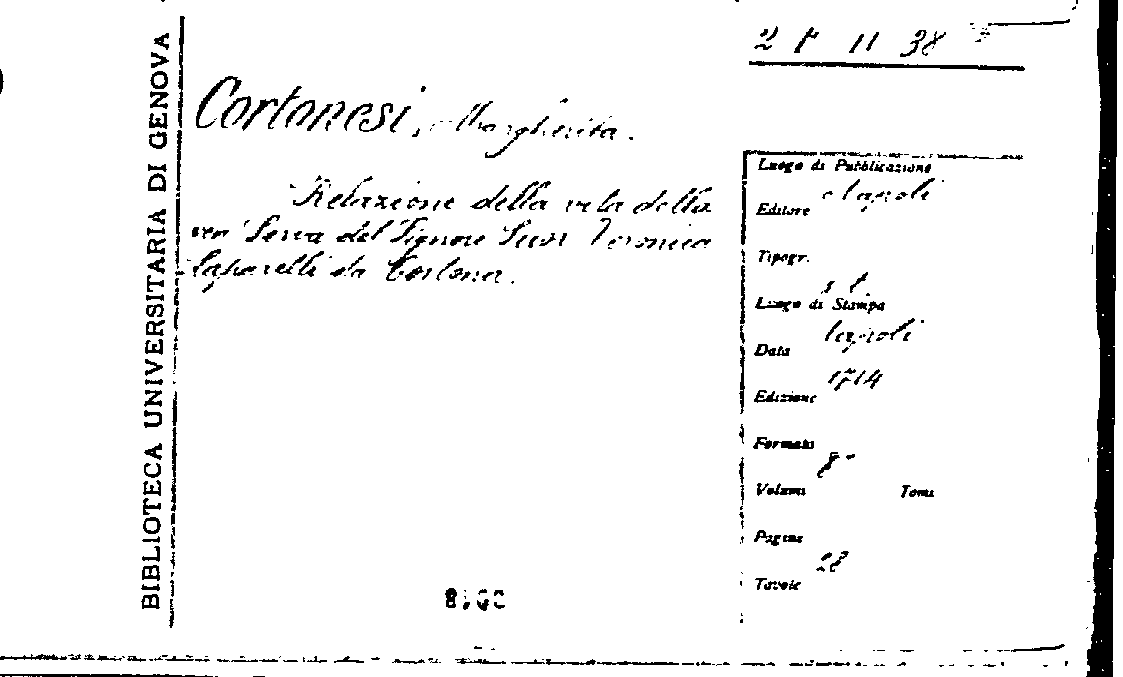 BIBLIOTECA UNIVERSITARIA DI GENOVA
2 F 11 38
Cortonesi, Margherita.
Relazione della vita della
ven Serva del Signore Suor Veronica
Laparelli da Cortona.
Luogo di Pubblicazione
Napoli
Editore
Tipogr.
s t
Luogo di Stampa
Napoli
Data
1714
Edizione
Formato
8°
Volumi Tomi
Pagine
28
Tavole